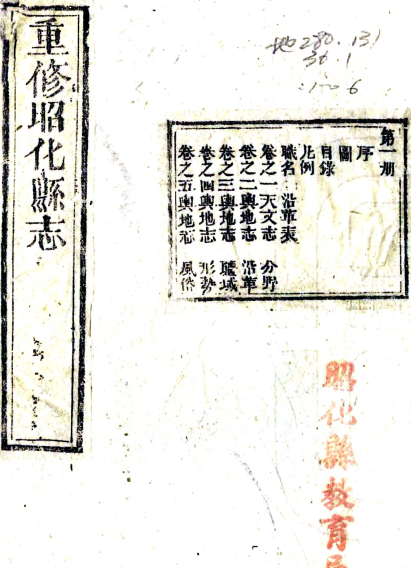 重修昭化縣志
地280.131
36.1
1-6
第一册
序
圖
目錄
凡例
職名 沿革表
卷之一天文志 分野
卷之二輿地志 沿革
卷之三輿地志 疆域
卷之四輿地志 形勢
卷之五輿地志 風俗
昭化縣教育局